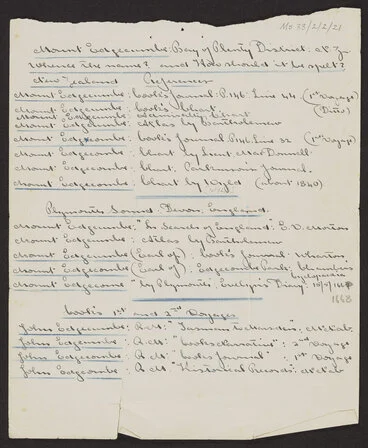 Ms 33/2/2/21
Mount Edgecumbe: Bay of Plenty District: N Z
Whence the name? and How should it be spelt?
New Zealand References
Mount Edgcumbe: Cook's Journal: P.146. Line 44. (1st Voyage)
Mount Edgecombe: Cook's Chart: (Ditto)
Mount Edgecumbe: Admiralty Chart
Mount Edgecumbe: Atlas by Bartholomew
Mount Edgcombe: Cook's Journal. P.146. Line 32 (1st Voyage)
Mount Edgecombe: Chart by Lieut. MacDonnell
Mount Edgecombe: Chart. Parkinson's Journal.
Mount Edgecombe: Chart by Wyld (about 1840)
Plymouth Sound. Devon, England.
Mount Edgcumbe: "In Search of England": E. V. Morton
Mount Edgcumbe: Atlas by Bartholomew
Mount Edgcumbe: (Earl of): Cook's Journal: Wharton.
Mount Edgcumbe: (Earl of): Edgecumbe Park: Chambers Cyclopædia
Mount Edgecumbe: "by Plymouth": Evelyn's Diary 10/7/
1668
Cook's 1st and 2nd Voyages
John Edgecumbe: R. M:
John Edgecumbe: R. M: 2nd Voyage
John Edgecombe: R M: "Cook's Journal": 1st Voyage
John Edgcombe: R M: "Historical Records":